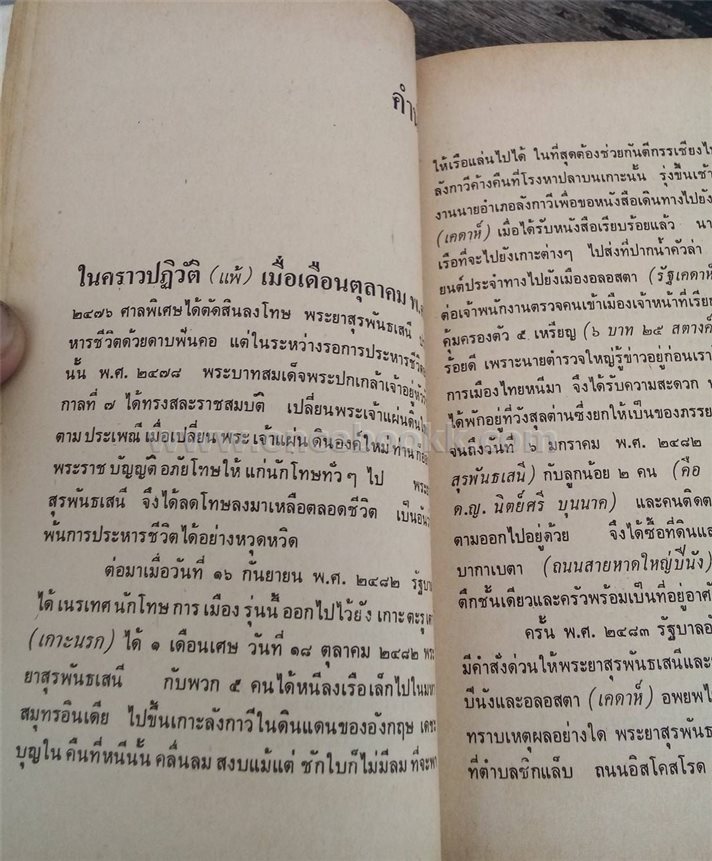 คำน
ในคราวปฏิวัติ (แพ้) เมื่อเดือนตุลาคม พ.ศ
๒๔๗๖ ศาลพิเศษได้ตัดสินลงโทษ พระยาสุรพันธเสนี
หารชีวิตด้วยดาบฟันคอ แต่ในระหว่างรอการประหารชีวิต
นั้น พ.ศ. ๒๔๗๘ พระบาทสมเด็จพระปกเกล้าเจ้าอยู่หัว
กาลที่ ๗ ได้ทรงสละราชสมบัติ เปลี่ยนพระเจ้าแผ่นดิน
ตามประเพณี เมื่อเปลี่ยนพระเจ้าแผ่นดินองค์ใหม่ ท่าน
พระราชบัญญัติอภัยโทษให้แก่นักโทษทั่วๆ ไป พระ
สุรพันธเสนี จึงได้ลดโทษลงมาเหลือตลอดชีวิต เป็นอัน
พ้นการประหารชีวิตได้อย่างหวุดหวิด
ต่อมาเมื่อวันที่ ๑๖ กันยายน พ.ศ. ๒๔๘๒ รัฐบา
ได้เนรเทศนักโทษการเมืองรุ่นนี้ออกไปไว้ยังเกาะตะรุเต
(เกาะนรก) ได้ ๑ เดือนเศษ วันที่ ๑๘ ตุลาคม ๒๔๘๒ พระ
ยาสุรพันธเสนี กับพวก ๕ คนได้หนีลงเรือเล็กไปในมหา
สมุทรอินเดีย ไปขึ้นเกาะลังกาวีในดินแดนของอังกฤษ เดชะ
บุญในคืนที่หนีนั้น คลื่นลมสงบแม้แต่ชักใบก็ไม่มีลมที่จะพา
ให้เรือแล่นไปได้ ในที่สุดต้องช่วยกันตีกรรเชียงไป
ลังกาวีค้างคืนที่โรงหาปลาบนเกาะนั้น รุ่งขึ้นเช้า
งานนายอำเภอลังกาวีเพื่อขอหนังสือเดินทางไปยัง
(เคดาห์) เมื่อได้รับหนังสือเรียบร้อยแล้ว นา
เรือที่จะไปยังเกาะต่างๆ ไปส่งที่ปากน้ำคัวล่า
ยนต์ประจำทางไปยังเมืองอลอสตา (รัฐเคดาห์
ต่อเจ้าพนักงานตรวจคนเข้าเมืองเจ้าหน้าที่เรีย
คุ้มครองตัว ๕ เหรียญ (๖ บาท ๒๕ สตางค์
ร้อยดี เพราะนายตำรวจใหญ่รู้ข่าวอยู่ก่อนเรา
การเมืองไทยหนีมา จึงได้รับความสะดวก
ได้พักอยู่ที่วังสุลต่านซึ่งยกให้เป็นของภรรย
จนถึงวันที่ ๖ มกราคม พ.ศ. ๒๔๘๒
สุรพันธเสนี) กับลูกน้อย ๒ คน (คือ
ด.ญ. นิตย์ศรี บุนนาค) และคนติดต
ตามออกไปอยู่ด้วย จึงได้ซื้อที่ดินและ
บากาเบตา (ถนนสายหาดใหญ่ปีนัง)
ตึกชั้นเดียวและครัวพร้อมเป็นที่อยู่อาศั
ครั้น พ.ศ. ๒๔๘๓ รัฐบาลอั
มีคำสั่งด่วนให้พระยาสุรพันธเสนีและ
ปีนังและอลอสตา (เคดาห์) อพยพไ
ทราบเหตุผลอย่างใด พระยาสุรพันธ
ที่ตำบลชิกแล็บ ถนนอิสโคสโรด